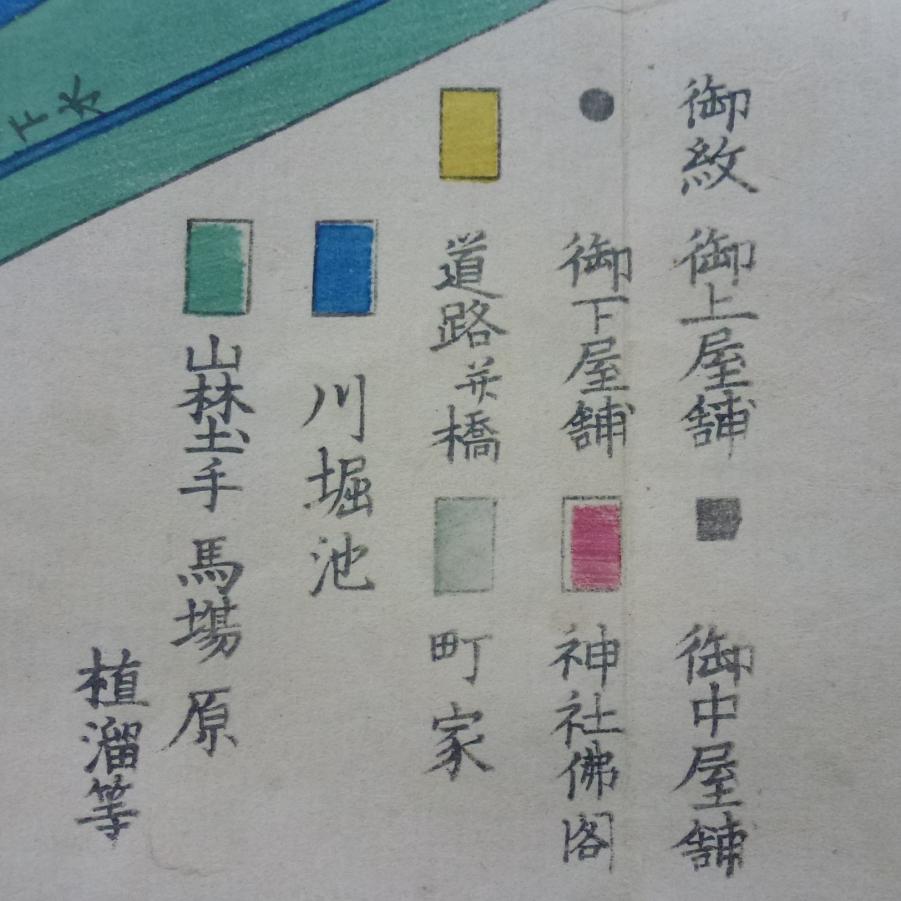 御紋 御上屋舗 御中屋舗
御下屋舗 神社佛閣
道路并橋 町家
川堀池
山林土手 馬場 原
植溜等
上水